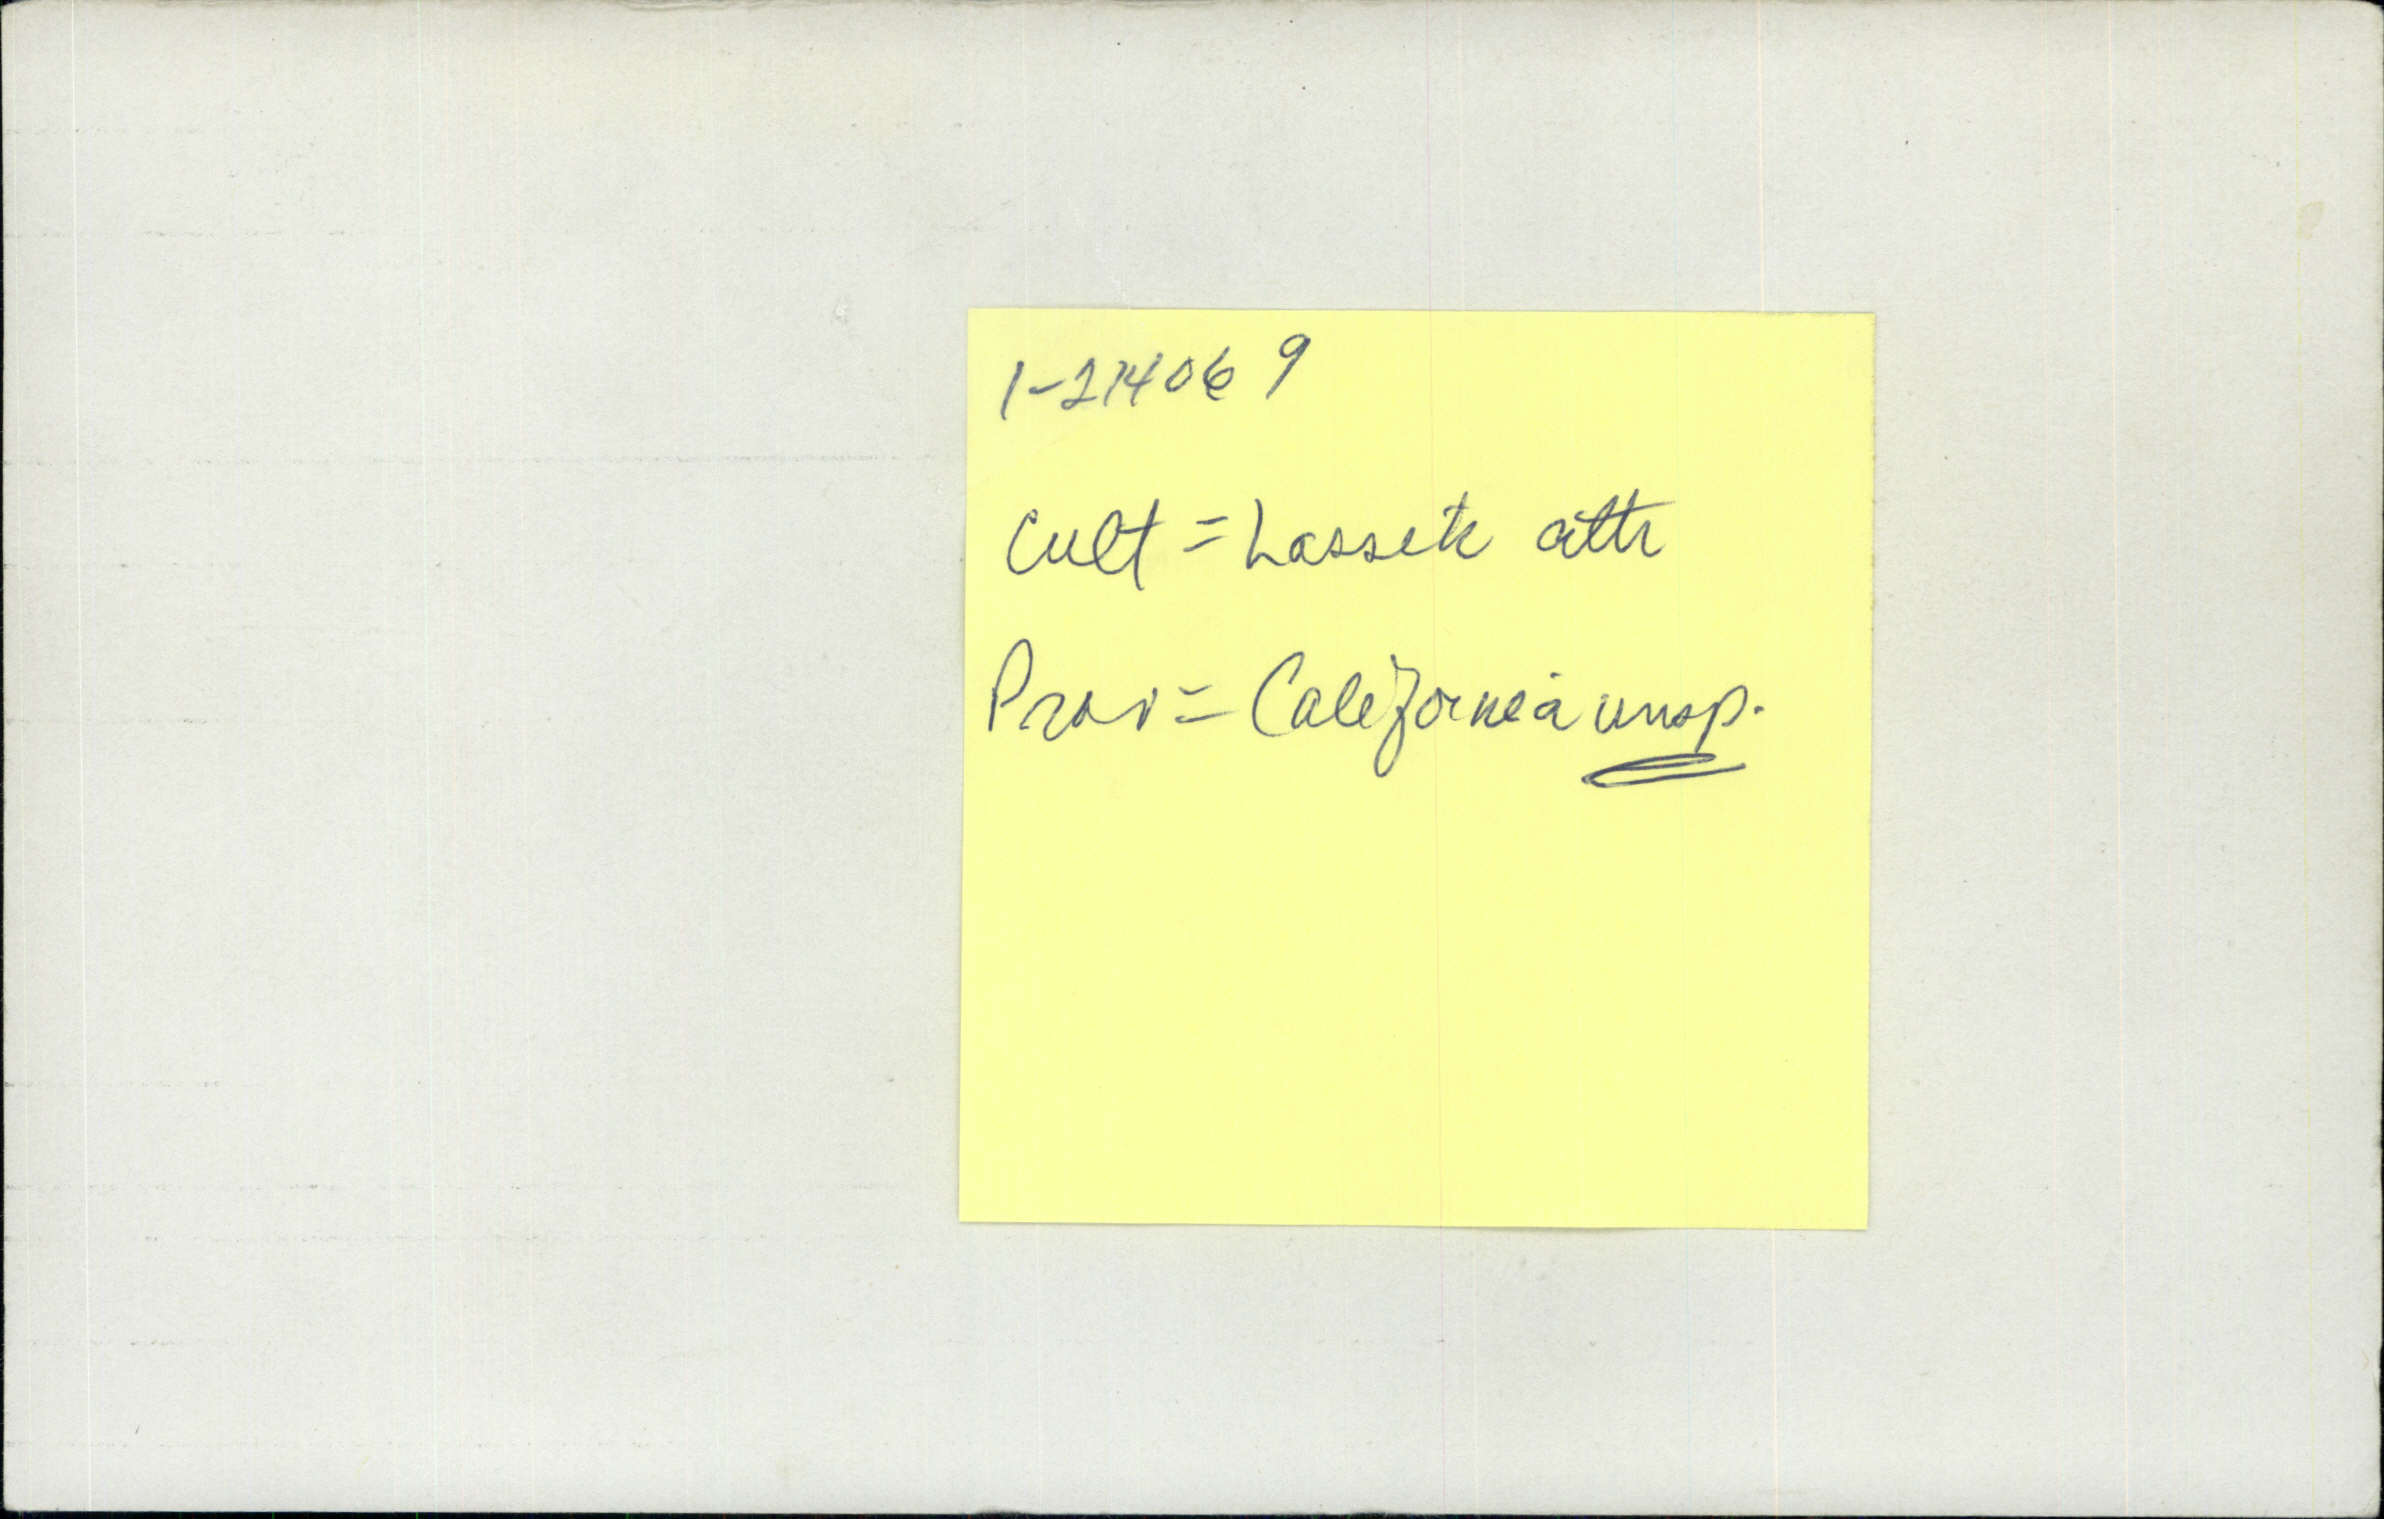 1-214069
Cult = Lassik attr
Prov = California unsp.